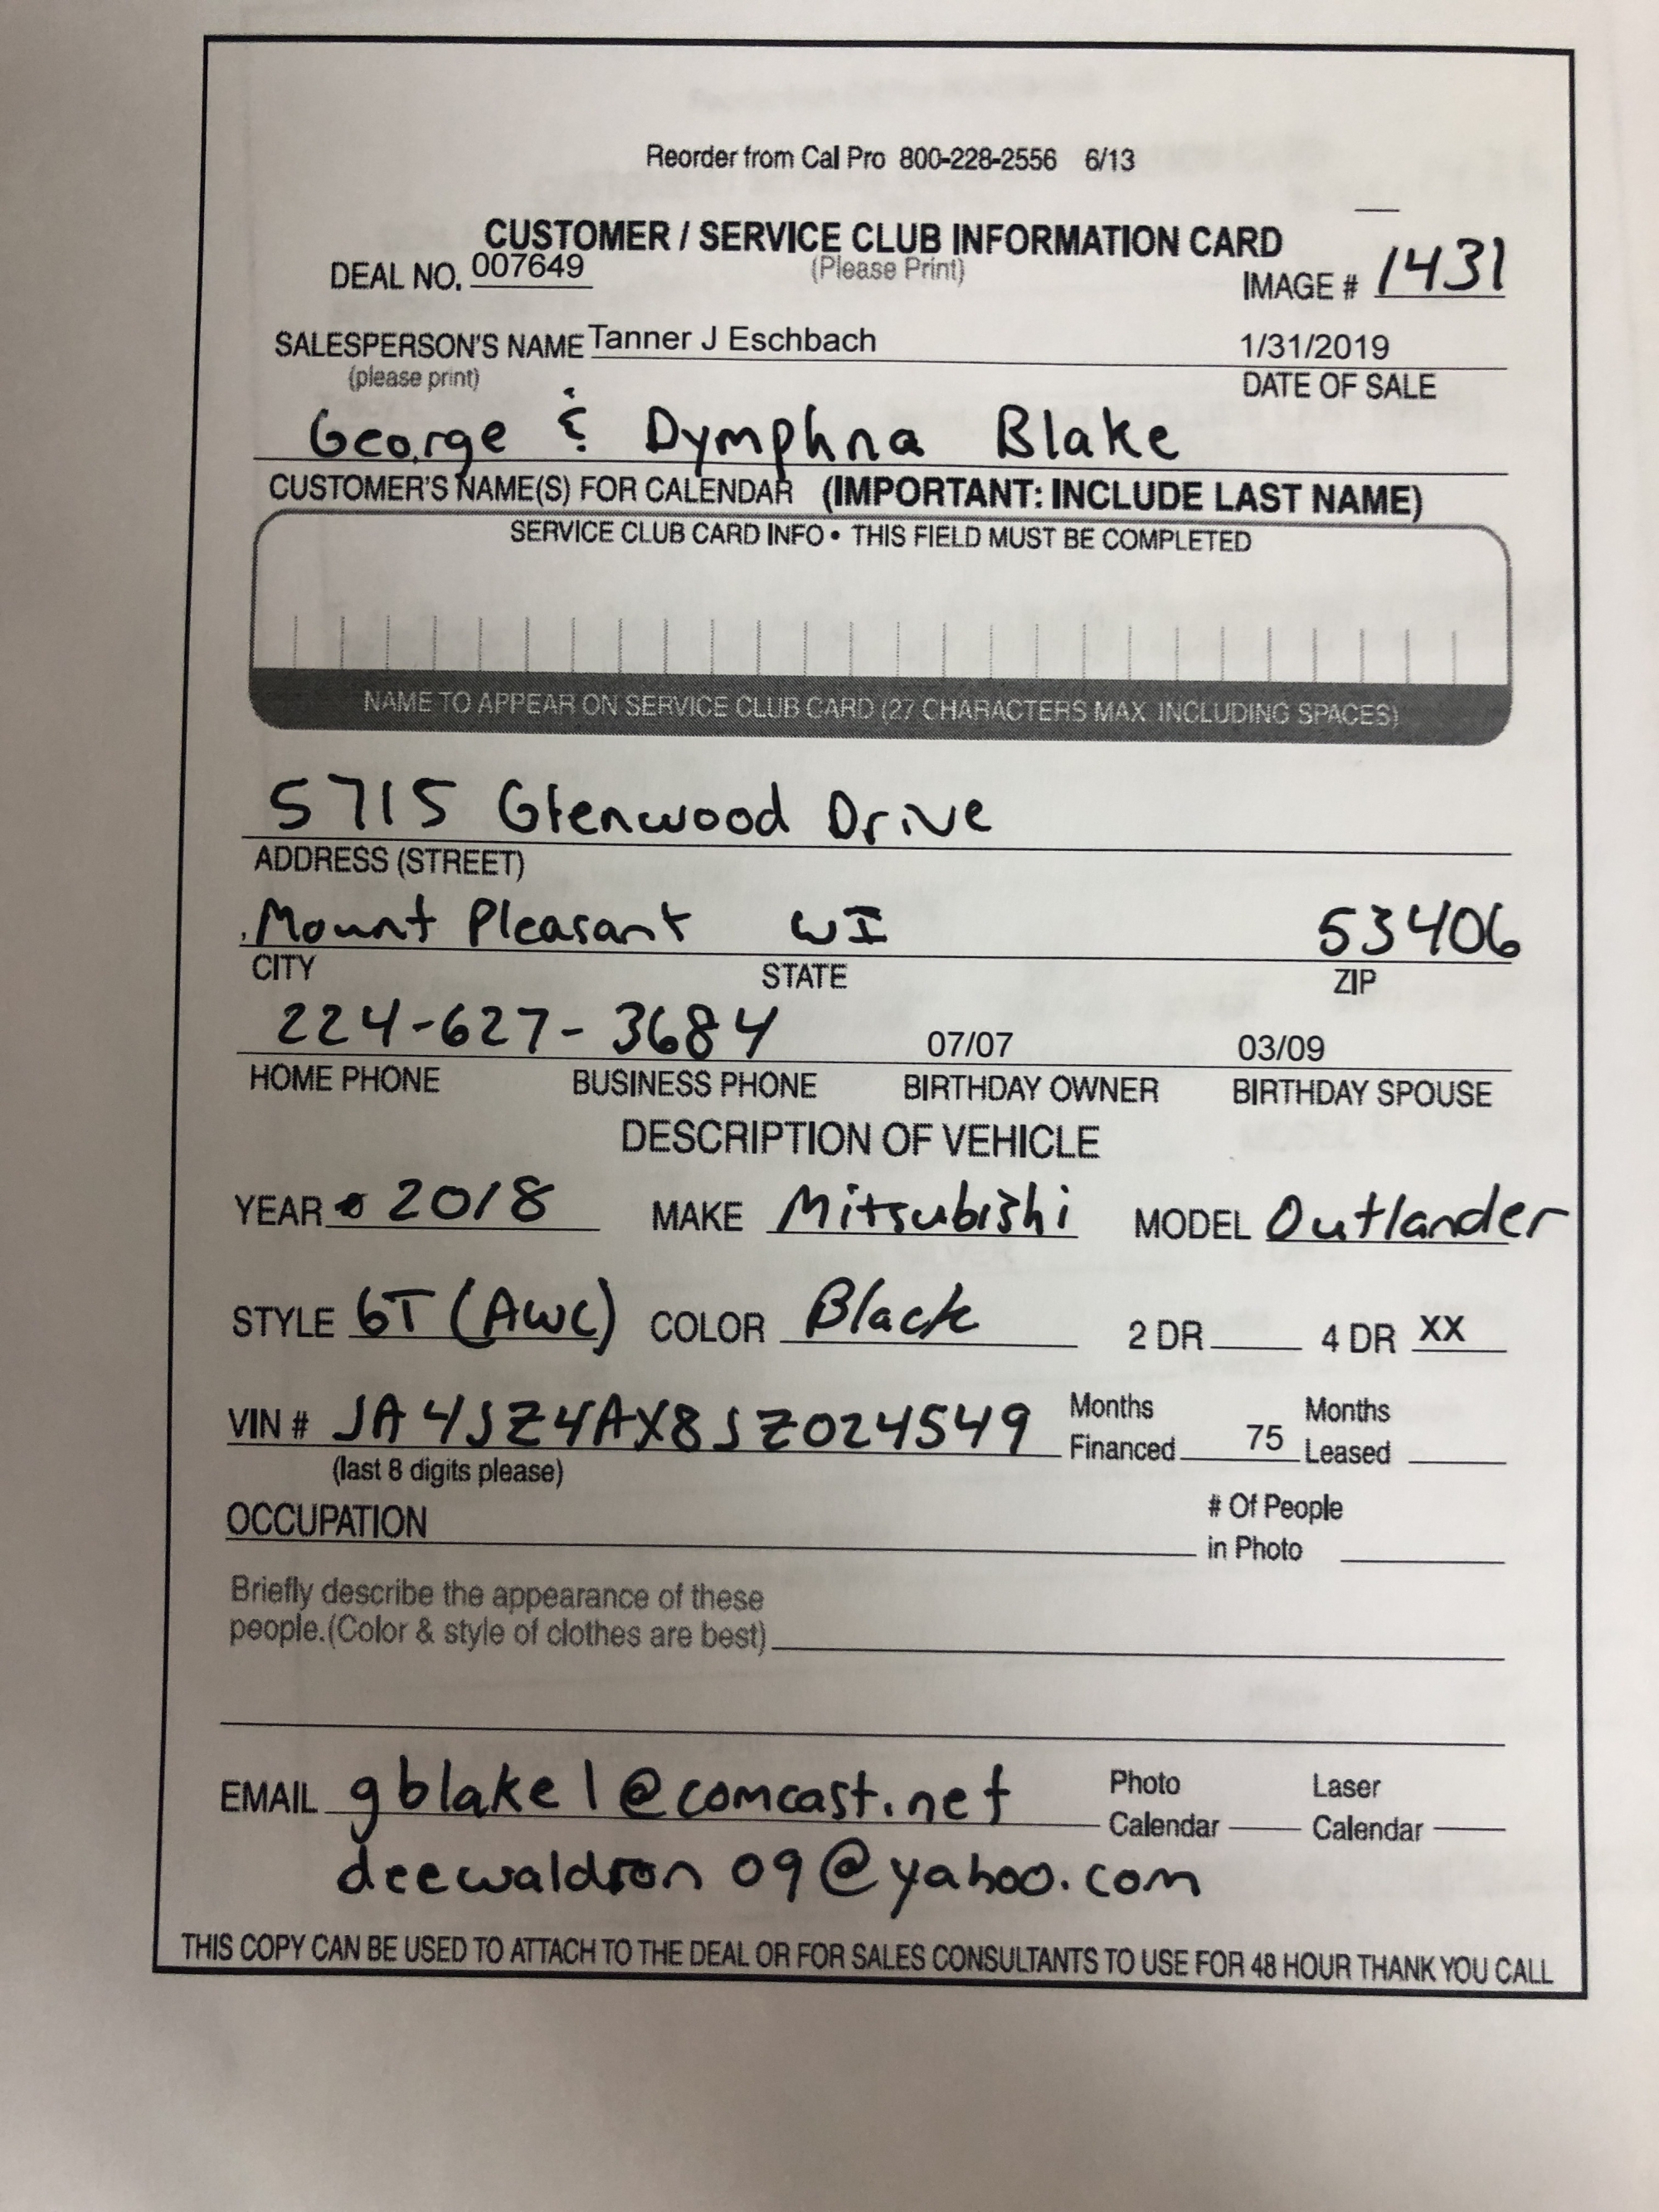 Reorder from Cal Pro 800-228-2556 6/13
CUSTOMER / SERVICE CLUB INFORMATION CARD
DEAL NO. 007649 (Please Print) IMAGE # 1431
SALESPERSON'S NAME Tanner J Eschbach 1/31/2019
(please print) DATE OF SALE
George & Dymphna Blake
CUSTOMER'S NAME(S) FOR CALENDAR (IMPORTANT: INCLUDE LAST NAME)
SERVICE CLUB CARD INFO • THIS FIELD MUST BE COMPLETED
NAME TO APPEAR ON SERVICE CLUB CARD (27 CHARACTERS MAX INCLUDING SPACES)
5715 Glenwood Drive
ADDRESS (STREET)
Mount Pleasant WI 53406
CITY STATE ZIP
224-627-3684 07/07 03/09
HOME PHONE BUSINESS PHONE BIRTHDAY OWNER BIRTHDAY SPOUSE
DESCRIPTION OF VEHICLE
YEAR 2018 MAKE Mitsubishi MODEL Outlander
STYLE GT (AWC) COLOR Black 2 DR 4 DR XX
VIN # JA4JZ4AX8JZ024549 Months Financed 75 Months Leased
(last 8 digits please)
OCCUPATION # Of People in Photo
Briefly describe the appearance of these
people.(Color & style of clothes are best)
EMAIL gblake1@comcast.net Photo Calendar Laser Calendar
deewaldron09@yahoo.com
THIS COPY CAN BE USED TO ATTACH TO THE DEAL OR FOR SALES CONSULTANTS TO USE FOR 48 HOUR THANK YOU CALL